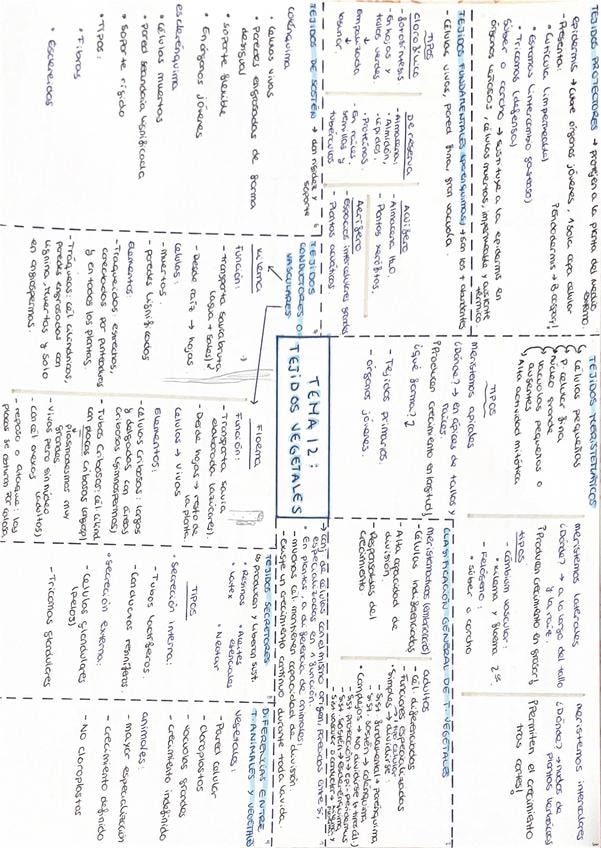 TEMA 12:
TEJIDOS VEGETALES
→ conj. de células con el mismo origen, parecidas entre sí,
especializadas en 1 función.
En plantas, a diferencia de animales:
- muchas cél. mantienen capacidad de división.
- existe un crecimiento continuo durante toda la vida.
CLASIFICACIÓN GENERAL DE T. VEGETALES
meristemáticos (embrionarios)
- Células indiferenciadas
- Alta capacidad de
división.
- Responsables del
crecimiento
adultos
- Cél. diferenciadas
- Funciones especializadas
TEJIDOS MERISTEMÁTICOS
Células pequeñas
P. celular fina
Núcleo grande
Vacuolas pequeñas o
ausentes
Alta actividad mitótica
TIPOS
meristemos apicales
¿Dónde? → en ápices de tallos y
raíces.
(Producen crecimiento en longitud)
¿qué forma?
- Tejidos primarios.
- órganos jóvenes.
meristemos laterales
¿Dónde? → a lo largo del tallo
y la raíz.
(Producen crecimiento en grosor)
TIPOS
- Cámbium vascular:
xilema y floema 2º.
- Felógeno:
súber o corcho
meristemos intercalares
¿Dónde? → nudos de
plantas herbáceas
(Permiten el crecimiento
tras cortes)
TEJIDOS PROTECTORES → protegen a la planta del medio
externo.
epidermis → cubre órganos jóvenes, 1 sola capa celular
- Presenta:
Cutícula (impermeable)
Estomas (intercambio gaseoso)
Tricomas (defensa)
Súber o corcho → sustituye a la epidermis en
órganos leñosos, células muertas, impermeable y aislante
térmico
TEJIDOS FUNDAMENTALES (parénquimas) → son los + abundantes
- Células vivas, pared fina, gran vacuola.
TIPOS
Clorofílico
- Fotosíntesis
- En hojas y
tallos verdes
De reserva
- Almacena
- Almidón,
lípidos,
proteínas.
- En raíces,
semillas y
tubérculos
Acuífero
- Almacena H₂O.
- Plantas xerófitas.
Aerífero
- Espacios intercelulares grandes
- Plantas acuáticas
TEJIDOS DE SOSTÉN → dan rigidez y
soporte
colénquima
Células vivas
Paredes engrosadas de forma
desigual
Soporte flexible
En órganos jóvenes
esclerénquima
Células muertas
Pared secundaria lignificada
soporte rígido
TIPOS:
Fibras
Esclereidas
TEJIDOS
CONDUCTORES O
VASCULARES
Xilema
Función:
- Transporta savia bruta
(agua + sales)
- Desde raíz → hojas
Células:
- muertas.
- paredes lignificadas
Elementos:
- Traqueidas: estrechas,
conectadas por punteaduras
y en todas las plantas.
- Tráqueas: cél. cilíndricas,
paredes engrosadas con
lignina, muertas y solo
en angiospermas.
Floema
Función:
- Transporta savia
elaborada (azúcares).
- Desde hojas → resto de
la planta.
Células → vivas
Elementos:
- Células cribosas: largas
y delgadas con áreas
cribosas (gimnospermas)
- Tubos cribosos: cél. cilind.
con placas cribosas (angiosp)
- Vivas pero sin núcleo
TEJIDOS SECRETORES
Producen y liberan sust.
Resinas
Látex
Aceites
esenciales
Néctar
TIPOS
Secreción interna:
- Tubos laticíferos.
- Conductos resiníferos.
Secreción externa:
- Células glandulares
(pelos)
- Tricomas glandulares
DIFERENCIAS ENTRE
T. ANIMALES Y VEGETALES
vegetales:
- Pared celular
- cloroplastos
- vacuolas grandes
- crecimiento indefinido
animales:
- mayor especialización
- crecimiento definido
- No cloroplastos